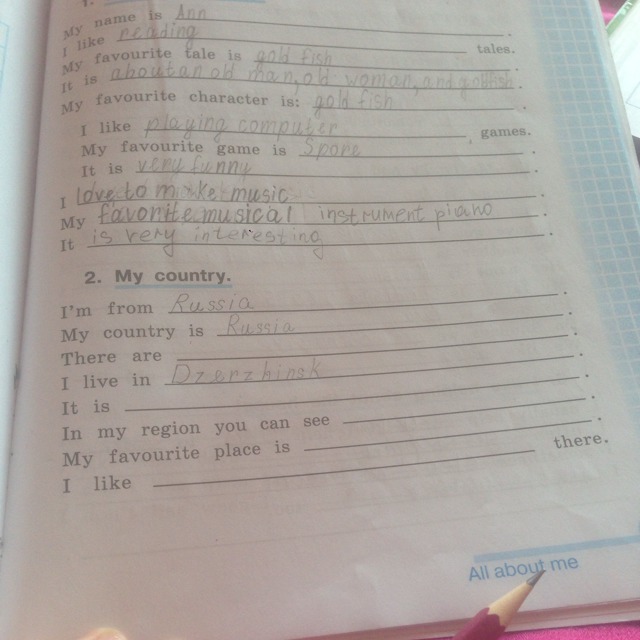 1.
My name is Ann.
I like reading tales.
My favourite tale is gold fish.
It is about an old man, old woman, and goldfish.
My favourite character is: gold fish.
I like playing computer, games.
My favourite game is Spore.
It is very funny.
I love to make music.
My favorite musical instrument piano.
It is very interesting.
2. My country.
I'm from Russia.
My country is Russia.
There are .
I live in Dzerzhinsk.
It is .
In my region you can see .
My favourite place is .
I like there.
All about me